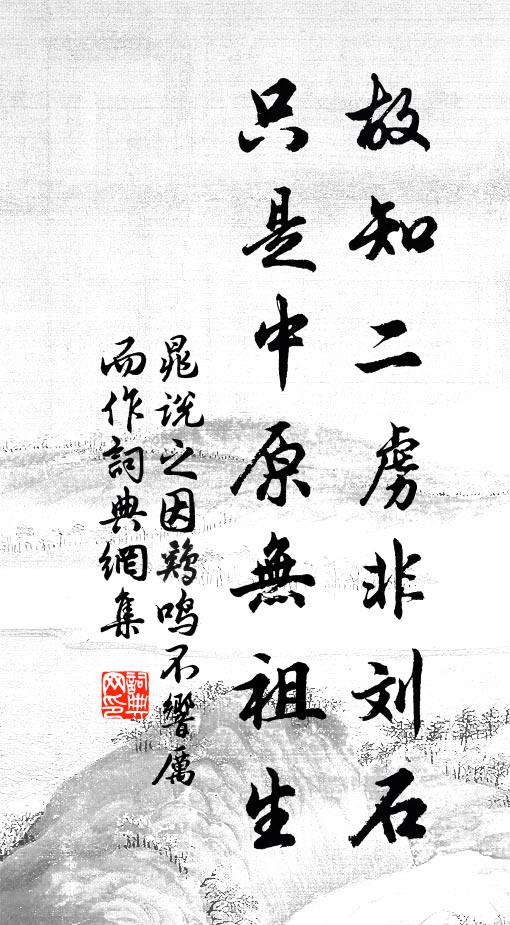 故知二虏非刘石
只是中原無祖生
晁说之因鷄鸣不響厲
而作詞典網集
詞典
网印